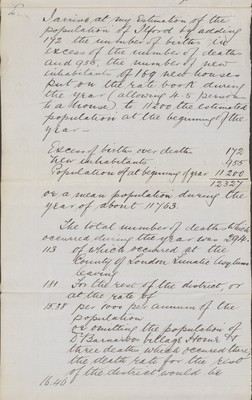 I arrive at my Estimation of the
population of Ilford by adding
172 the number of births in
excess of the number of deaths
and 955, the number of new
inhabitants of 169 new houses
put on the rate book during
the year (allowing 4.5 persons
to a house) to 11200 the estimated
population at the beginning of the
year —
Excess of births over deaths 172
New inhabitants 955
Population at beginning of year 11200
12327
or a mean population during the
year of about 11763.
The total number of deaths which
occurred during the year was 294.
113 of which occurred at the
County of London Lunatic Asylum
leaving
181 for the rest of the district, or
at the rate of
15.38 per 1000 per annum of the
population
or omitting the population of
Dr Barnardos Village Home &
three deaths which occurred there,
the death rate for the rest
of the district would be
16.46